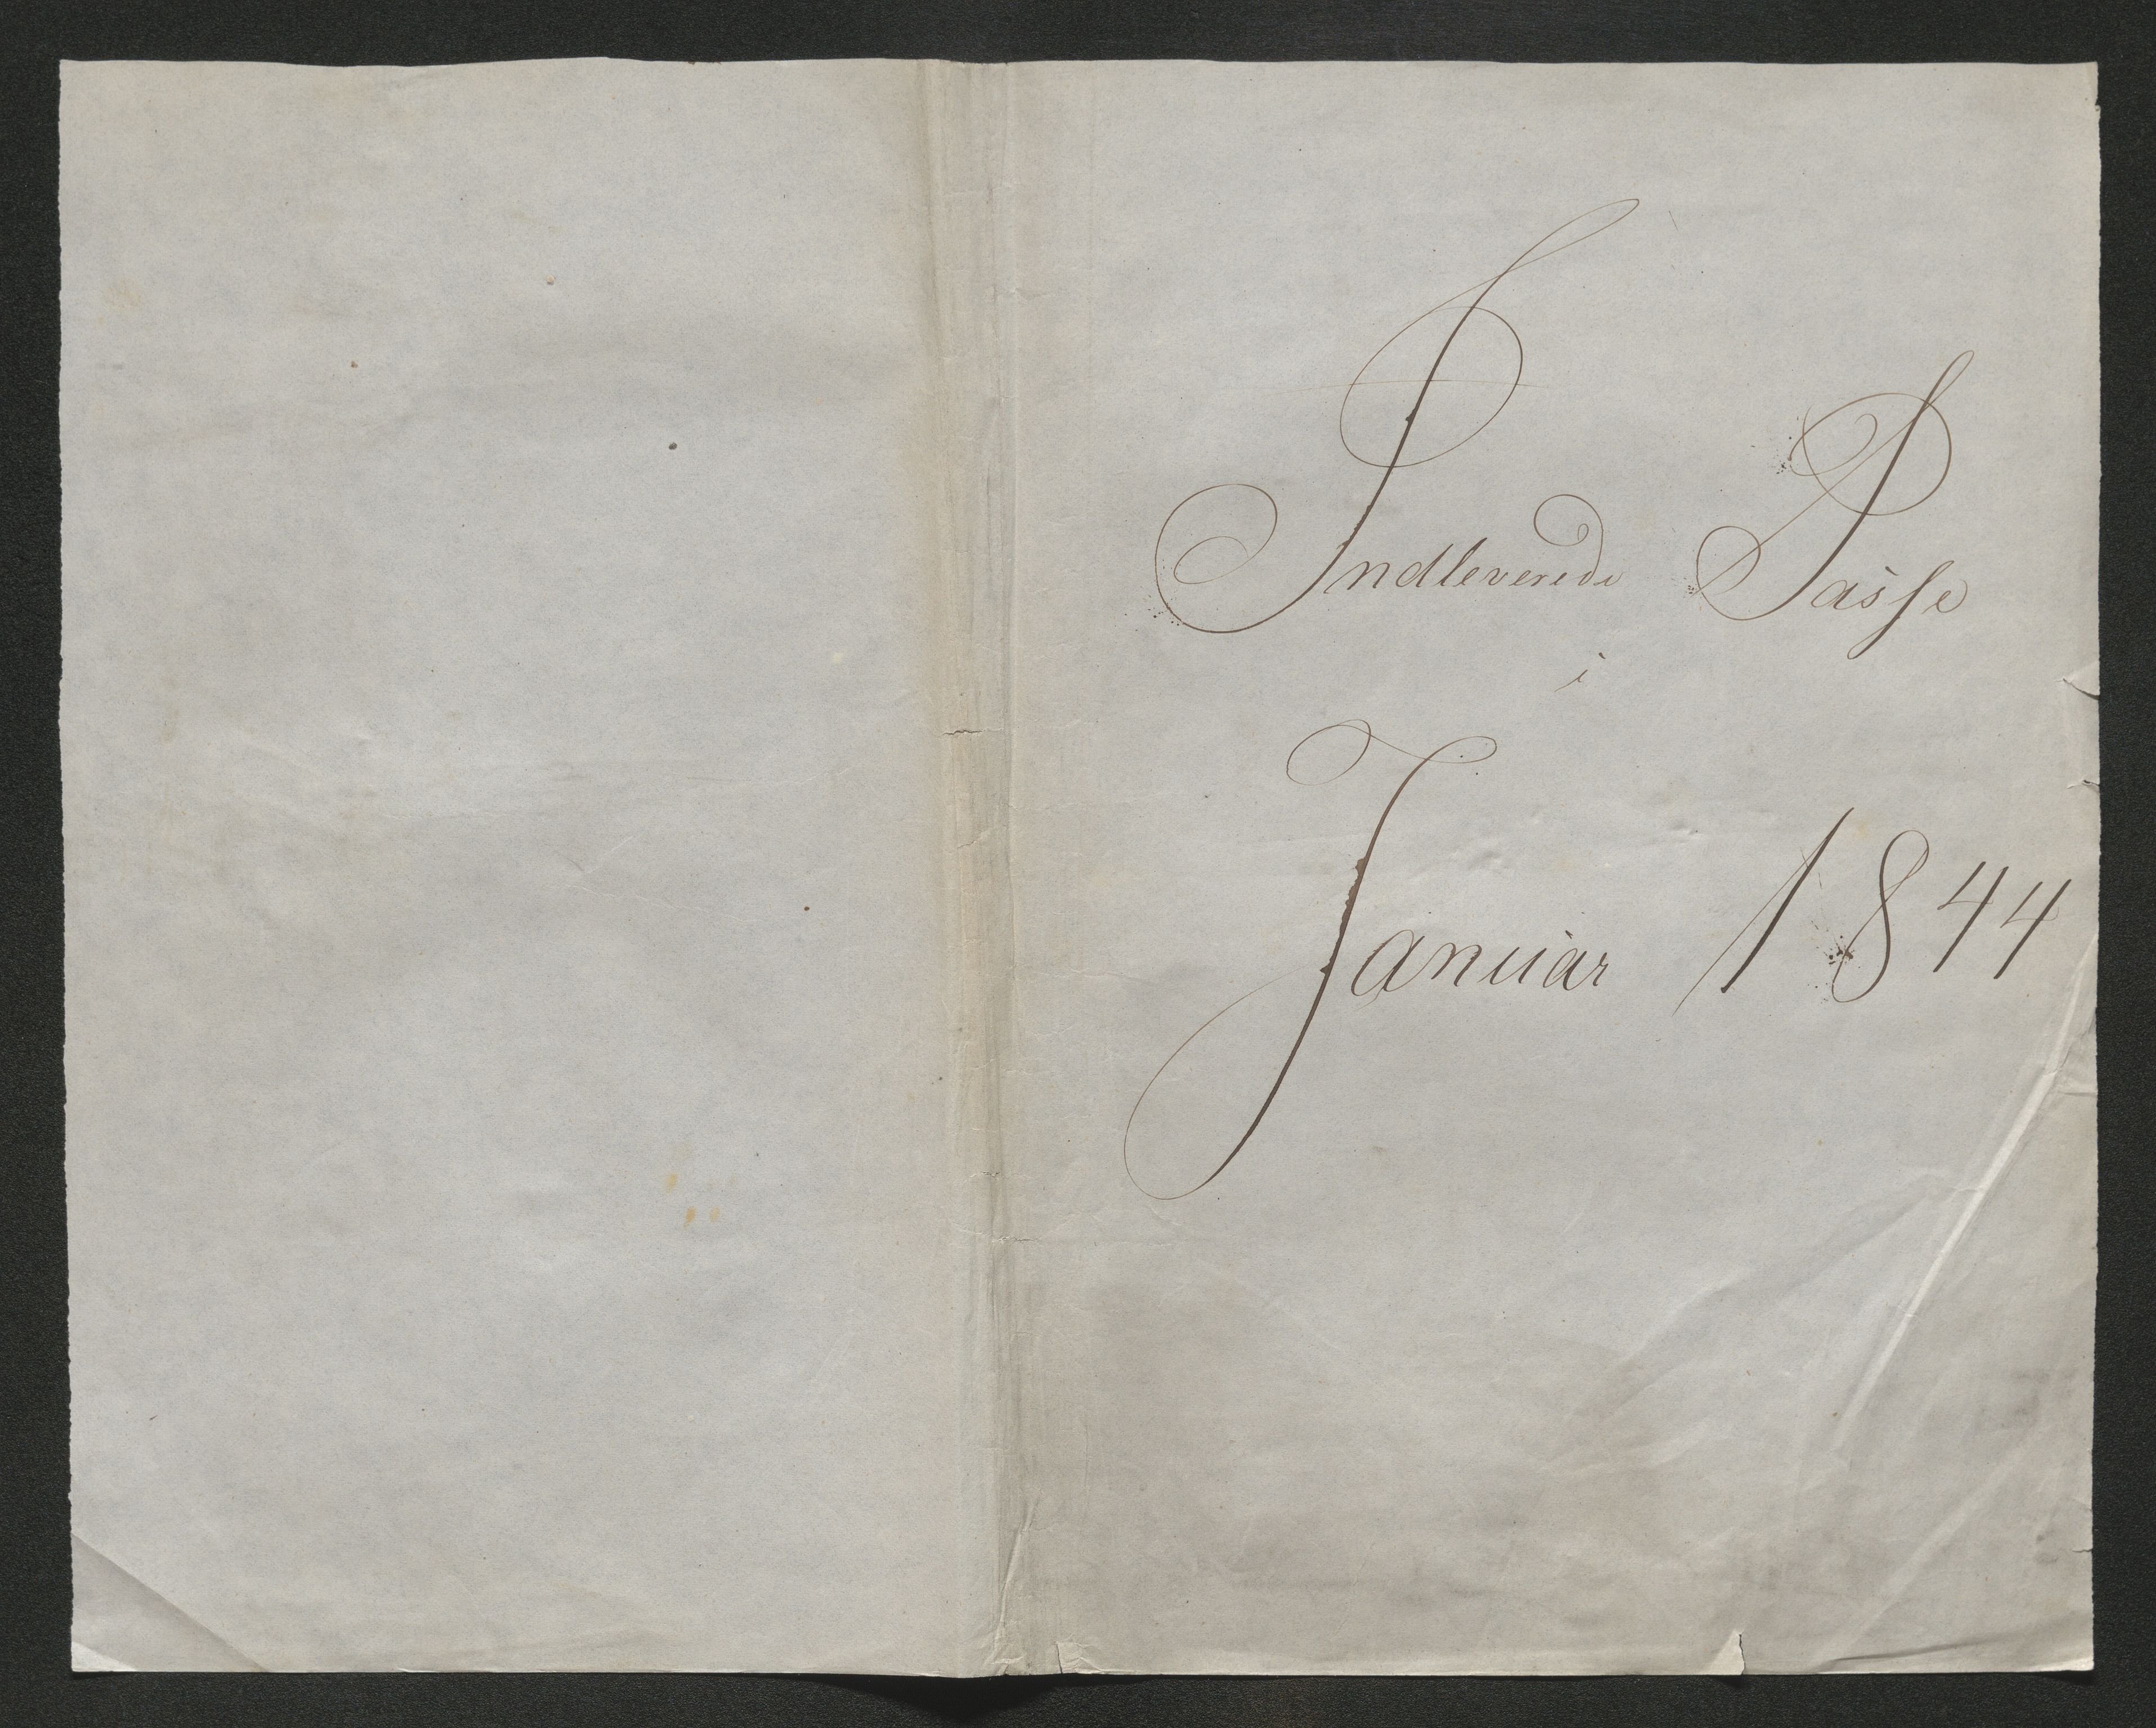 Indleverede Passe
i
Januar 1844